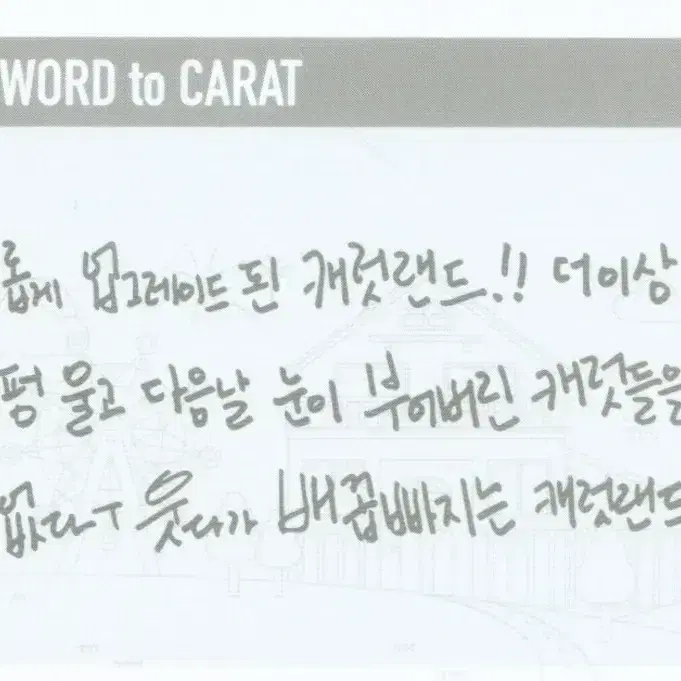 WORD to CARAT
롭게 업그레이드 된 캐럿랜드!! 더이상
펑 울고 다음날 눈이 부어버린 캐럿들을
없다ㅜ 웃다가 배꼽빠지는 캐럿랜드